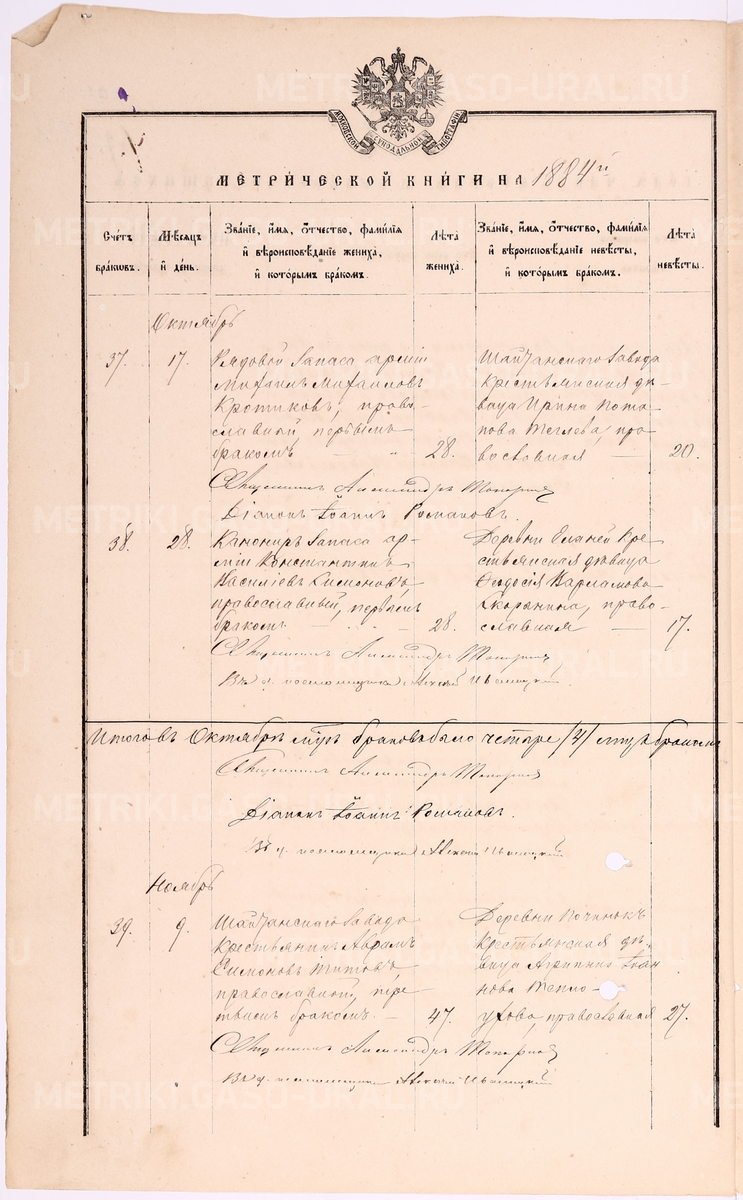 МОСКОВСКОЙ СѴНОДАЛЬНОЙ ТИПОГРАФІИ
МЕТРИЧЕСКОЙ КНИГИ НА 1884й
Счетъ браковъ.
Мѣсяцъ и день.
Званіе, имя, отчество, фамилія
и вѣроисповѣданіе жениха,
и которымъ бракомъ.
Лѣта
жениха.
Званіе, имя, отчество, фамилія
и вѣроисповѣданіе невѣсты,
и которымъ бракомъ.
Лѣта
невѣсты.
Октябрь
37.
17.
Рядовой запаса арміи
Михаилъ Михаиловъ
Кротиковъ, право-
славный, первымъ
бракомъ
28.
Шайтанскаго завода
крестьянская дѣ-
вица Ирина Пота-
пова Теглева, пра
вославная
20.
Священникъ Александръ Топорковъ
Діаконъ Іоаннъ Романовъ.
38.
28.
Канониръ запаса ар-
міи Константинъ
Василіевъ Симоновъ,
православный, первымъ
бракомъ
28.
Деревни Еланей кре-
стьянская дѣвица
Ѳеодосія Варламова
Скорынина, право-
славная
17.
Священникъ Александръ
И. д. псаломщика Алексѣй
Итого въ Октябрѣ мцѣ браковъ было четыре /4/
Священникъ Александръ
Діаконъ Іоаннъ Романовъ.
И. д. псаломщика Алексѣй
Ноябрь
39.
9.
Шайтанскаго завода
крестьянинъ Аврамъ
Симоновъ Титовъ
православный, тре
тьимъ бракомъ.
47.
Деревни Починокъ
крестьянская дѣ-
вица Агрипина Іоан
нова Тепло-
ухова, православная
27.
Священникъ Александръ
И. д. псаломщика Алексѣй
METRIKI.GASO-URAL.RU